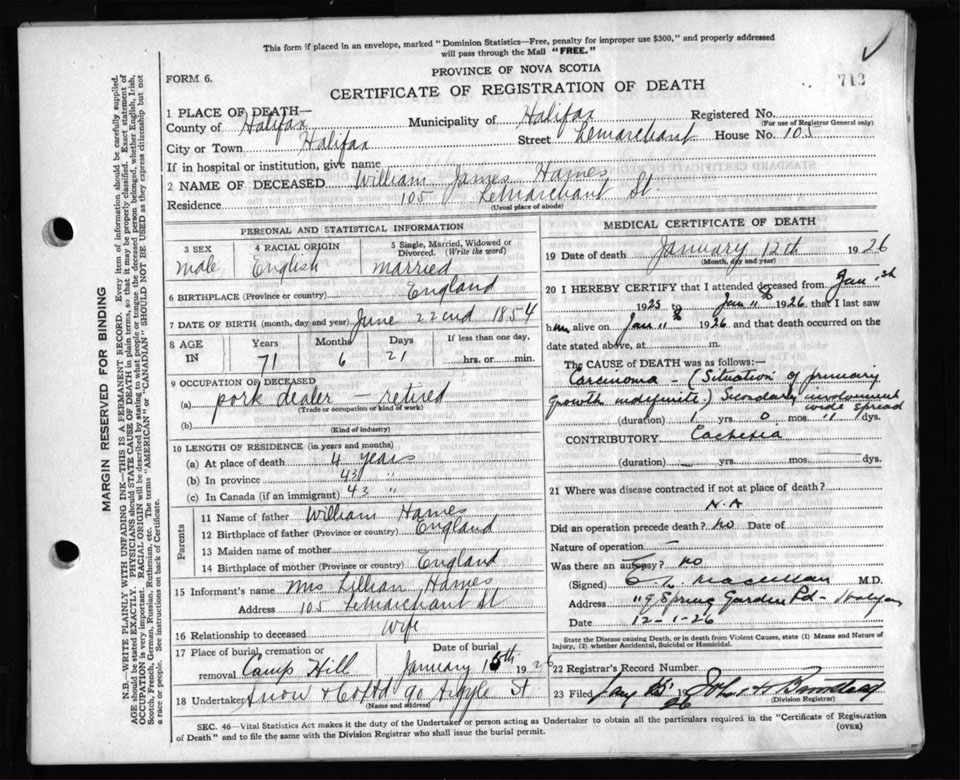 This form if placed in an envelope, marked "Dominion Statistics—Free, penalty for improper use $300," and properly addressed
will pass through the Mail "FREE."
712
FORM 6.
PROVINCE OF NOVA SCOTIA
CERTIFICATE OF REGISTRATION OF DEATH
1 PLACE OF DEATH—
County of Halifax Municipality of Halifax Registered No.
(For use of Registrar General only)
City or Town Halifax Street Lemarchant House No. 105
If in hospital or institution, give name
2 NAME OF DECEASED William James Hames
Residence 105 LeMarchant St.
(Usual place of abode)
PERSONAL AND STATISTICAL INFORMATION
3 SEX 4 RACIAL ORIGIN 5 Single, Married, Widowed or Divorced. (Write the word)
male English married
6 BIRTHPLACE (Province or country) England
7 DATE OF BIRTH (month, day and year) June 22nd 1854
8 AGE IN Years Months Days If less than one day,
71 6 21 hrs. or min.
9 OCCUPATION OF DECEASED
(a) pork dealer — retired
(Trade or occupation or kind of work)
(b)
(Kind of industry)
10 LENGTH OF RESIDENCE (in years and months)
(a) At place of death 4 years
(b) In province 43 "
(c) In Canada (if an immigrant) 43 "
Parents
11 Name of father William Hames
12 Birthplace of father (Province or country) England
13 Maiden name of mother
14 Birthplace of mother (Province or country) England
15 Informant's name Mrs Lillian Hames
Address 105 LeMarchant St
16 Relationship to deceased wife
17 Place of burial, cremation or removal Camp Hill Date of burial January 15th 1926
18 Undertaker Snow & Co Ltd 90 Argyle St
(Name and address)
MEDICAL CERTIFICATE OF DEATH
19 Date of death January 12th 1926
(Month, day and year)
20 I HEREBY CERTIFY that I attended deceased from Jan 1st
1925 to Jan 11th 1926 that I last saw
him alive on Jan 11th 1926 and that death occurred on the
date stated above, at m.
The CAUSE of DEATH was as follows:—
Carcinoma — (Situation of primary
growth indefinite.) Secondary involvement
wide spread
(duration) 1 yrs. 0 mos. 11 dys.
CONTRIBUTORY Cachexia
(duration) yrs. mos. dys.
21 Where was disease contracted if not at place of death?
N.A
Did an operation precede death? No Date of
Nature of operation —
Was there an autopsy? No
(Signed) M.D.
Address Spring Garden Rd -
Date 12-1-26
State the Disease causing Death, or in death from Violent Causes, state (1) Means and Nature of
Injury, (2) whether Accidental, Suicidal or Homicidal.
22 Registrar's Record Number
23 Filed Jany 15 1926 John
(Division Registrar)
SEC. 46—Vital Statistics Act makes it the duty of the Undertaker or person acting as Undertaker to obtain all the particulars required in the "Certificate of Registration
of Death" and to file the same with the Division Registrar who shall issue the burial permit.
(OVER)
MARGIN RESERVED FOR BINDING
N.B.—WRITE PLAINLY WITH UNFADING INK—THIS IS A PERMANENT RECORD. Every item of information should be carefully supplied.
AGE should be stated EXACTLY. PHYSICIANS should STATE CAUSE OF DEATH in plain terms, so that it may be properly classified. Exact statement of
OCCUPATION is very important. RACIAL ORIGIN will be described by stating to what people or tongue the deceased person belonged, whether English, Irish,
Scotch, French, German, Russian, Ruthenian, etc. The terms "AMERICAN" or "CANADIAN" SHOULD NOT BE USED as they express citizenship but not
a race or people. See instructions on back of Certificate.